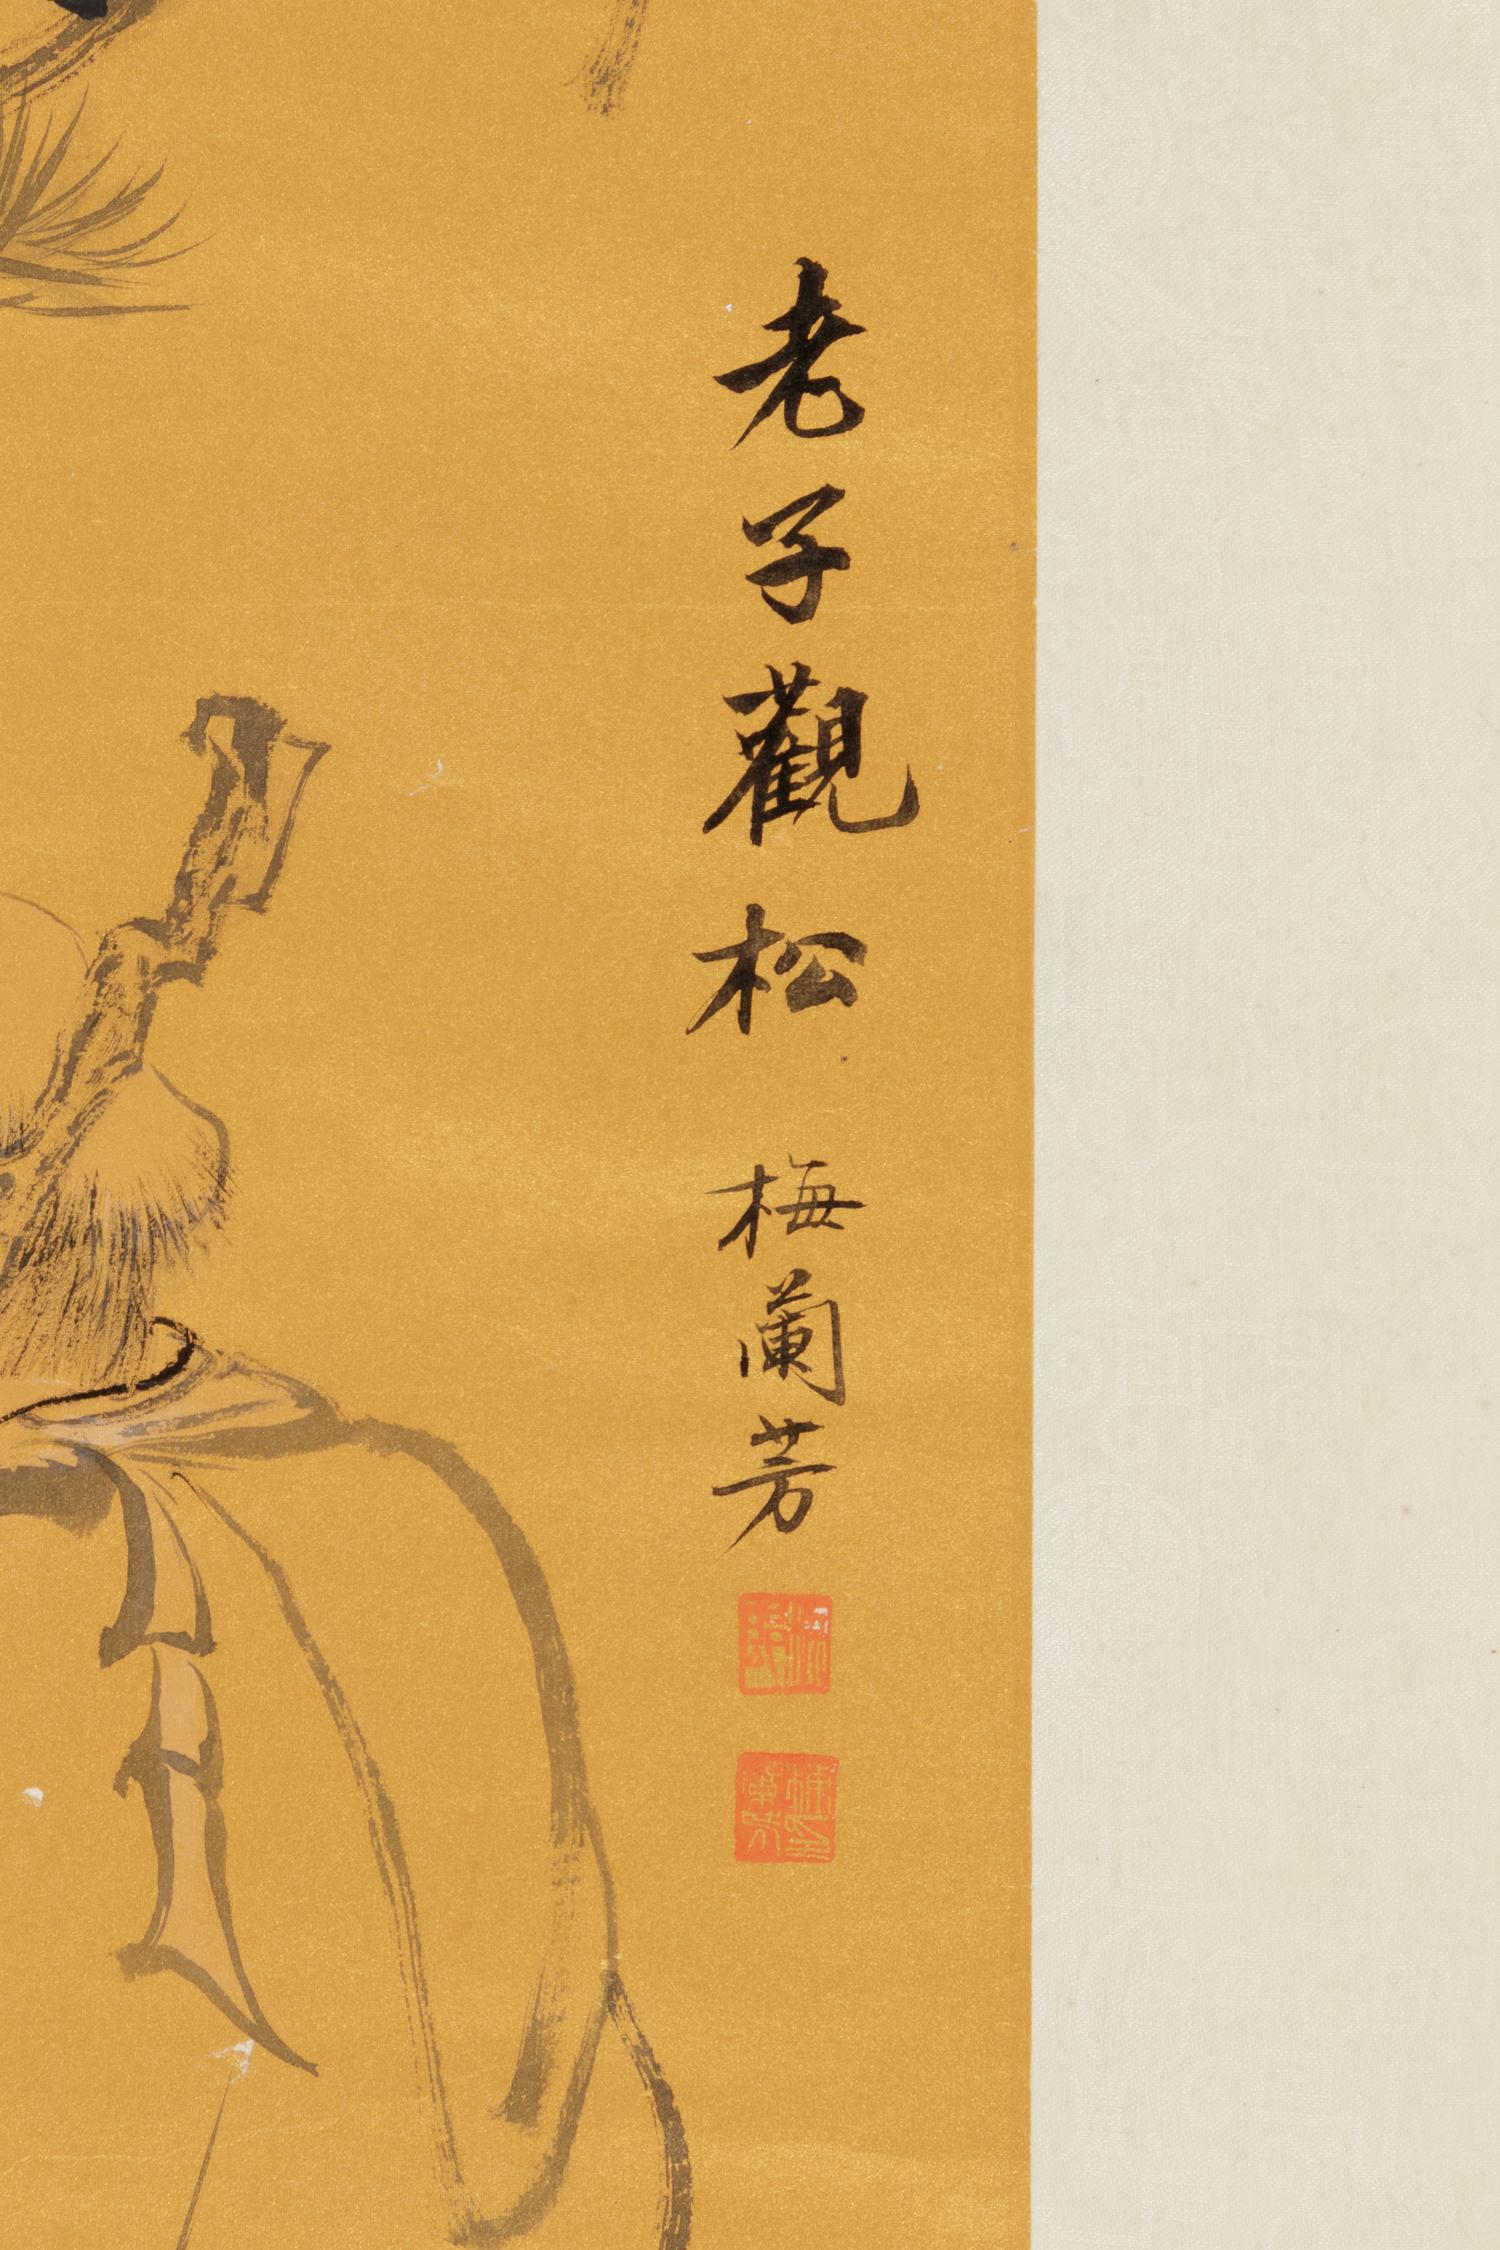 老子觀松
梅蘭芳